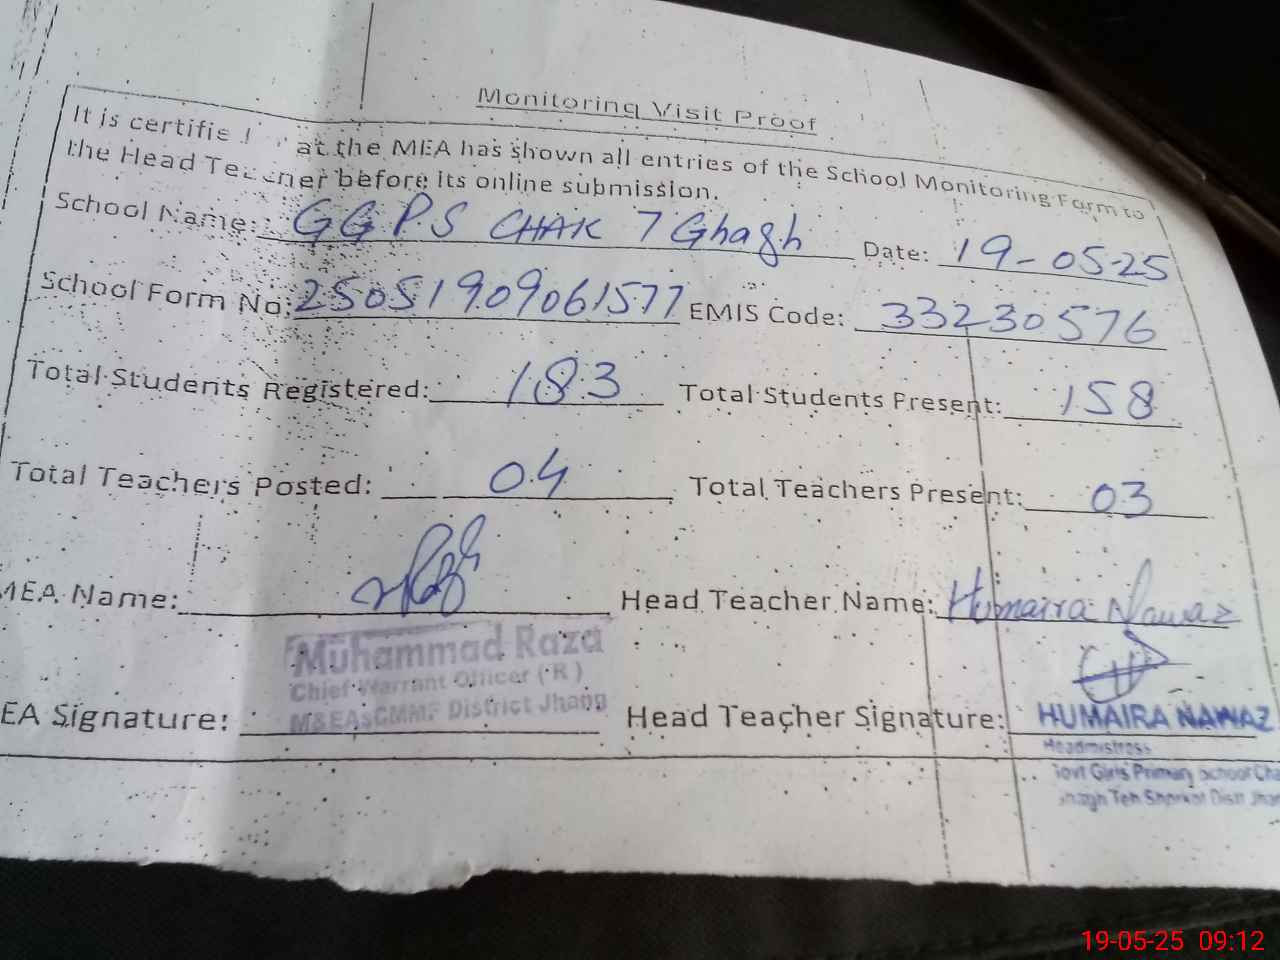 Monitoring Visit Proof
It is certifie at the MEA has shown all entries of the School Monitoring Form to
the Head Teacher before its online submission.
School Name: GGPS CHAK 7 Ghagh Date: 19-05-25
School Form No: 25051909061577 EMIS Code: 33230576
Total Students Registered: 183 Total Students Present: 158
Total Teachers Posted: 04 Total Teachers Present: 03
MEA Name: Head Teacher Name: Humaira Nawaz
Muhammad Raza
Chief Warrant Officer (R)
M&EAsCMMF District Jhang
EA Signature: Head Teacher Signature: HUMAIRA NAWAZ
Headmistress
Govt Girls Primary School Cha
Ghagh Teh Shorkot Distt Jhan
19-05-25 09:12